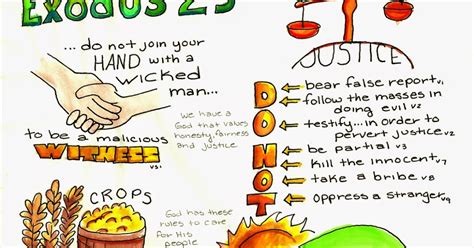 Exodus 23
... do not join your
HAND with a
wicked
man...
to be a malicious
WITNESS vs1.
we have a
God that values
honesty, fairness
and justice
JUSTICE
DO NOT
bear false report v1
follow the masses in
doing evil v2
testify...in order to
pervert justice v2
be partial v3
kill the innocent v7
take a bribe v8
oppress a stranger v9
CROPS
God has these
rules to care
for His
people